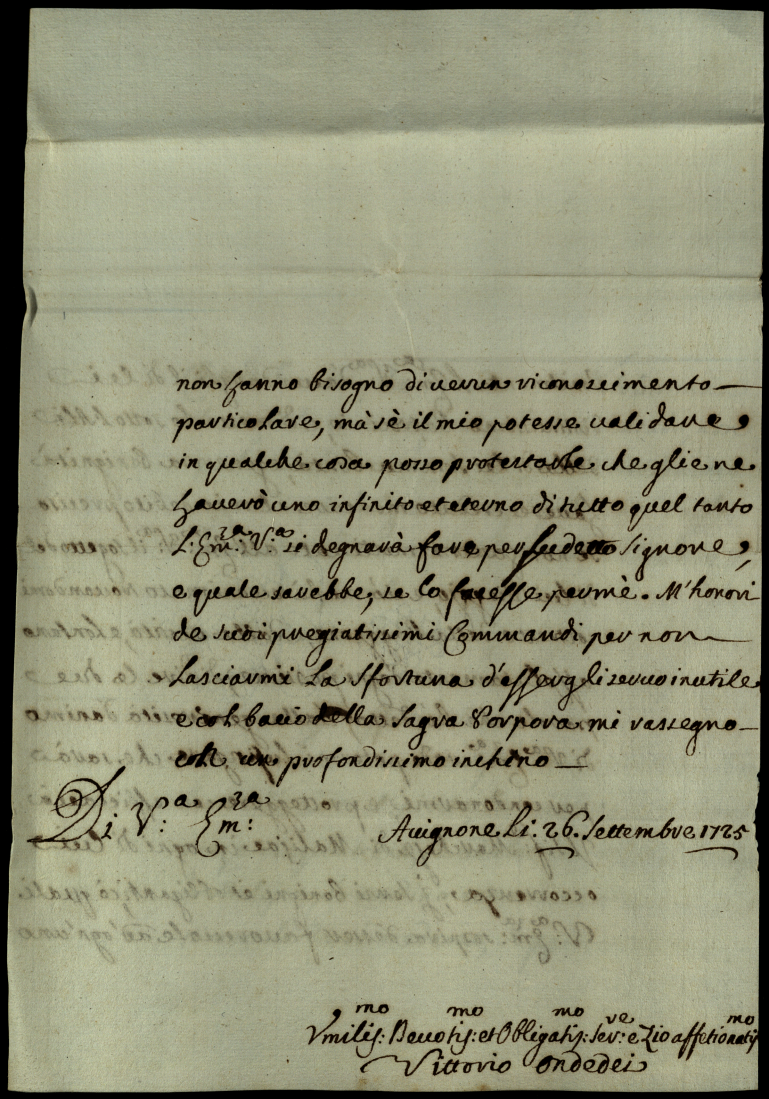 non hanno bisogno di verun riconoscimento
particolare, mà sè il mio potesse validare,
in qualche cosa posso protestarle che gliene
haverò uno infinito et eterno di tutto quel tanto
L: Em:za V:a si degnarà fare per sudetto Signore,
e quale sarebbe, se lo facesse per mè. M'honori
de suoi pregiatissimi Commandi per non
lasciarmi la sfortuna d'essergli servo inutile
e col bacio della Sagra Porpora mi rassegno
con un profondissimo inchino
Di V:a Em:za
Avignone li. 26. Settembre 1725
Vmilis:mo Devotis:mo et Obligatis:mo Ser:ve e Zio affetionatis:mo
Vittorio Ondedei